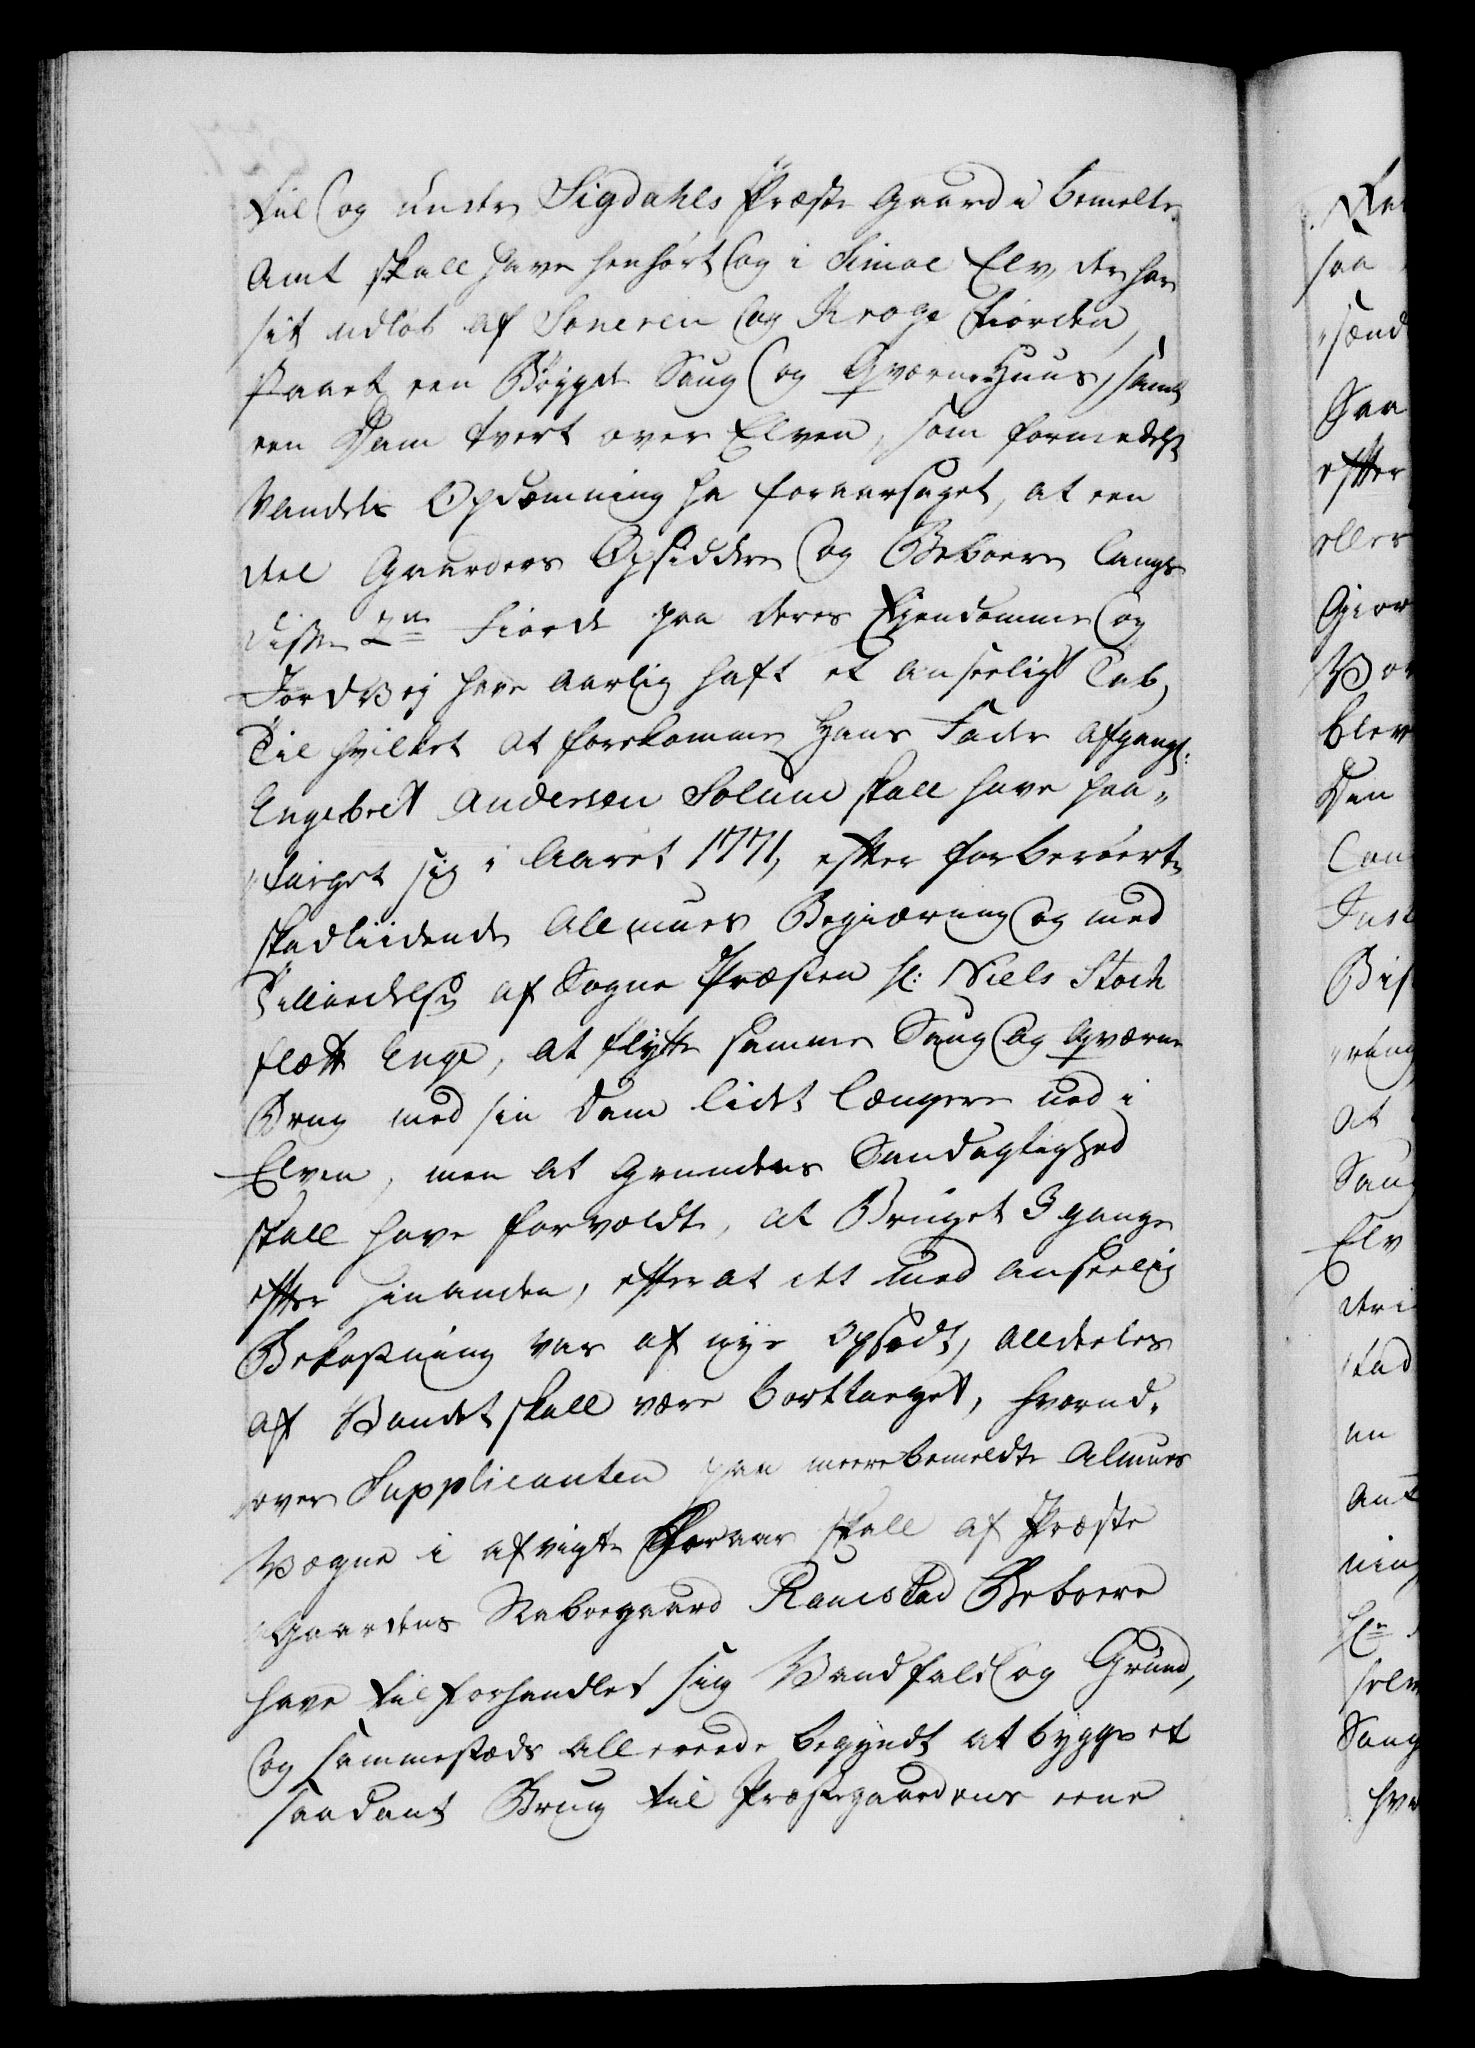 til og under Sigdahls Præste Gaard i bemelte
Amt skall have henhørt og i Simoe Elv, der har
sit udløb af Soneren og Kroge Fiorden,
staaet een Bøygde Saug og Qværne-Huus, samt
een Dam tvert over Elven, som formedelst
Vandets Opdæmning ha foraarsaget, at een
deel Gaarders Opsiddere og Beboere langs
disse 2de Fiorde paa deres Ejendomme og
Jordvej have aarlig haft et anseeligt Tab,
Til hvilket at forekomme Hans Fader afgangs:
Engebret Andersen Solum skall have paa-
„taget sig i Aaret 1771, efter forberørte
skadliidende Allmues Begiæring og med
Tilladelse af Sogne Præsten Hr: Niels Stock
flæth Enge, at flytte samme Saug og Qværne
Brug med sin Dam lidet længere ned i
Elven, men at Grundens Sandagtighed
skall have forvoldt, at Bruget 3 gange
efter hinanden, efter at det med anseelig
Bekostning var af nye opsadt, alldeeles
af Vandet skall være borttaget, hvorud-
„over Supplicanten paa meerebemeldte Almues
Vægne i afvigte Foraar skall af Præste
„Gaardens Naboegaard Ramstad Beboere
have tilforhandlet sig Vandfald og Grund,
og sammestæds allereede begyndt at bygge et
saadant Brug til Præstegaardens eene